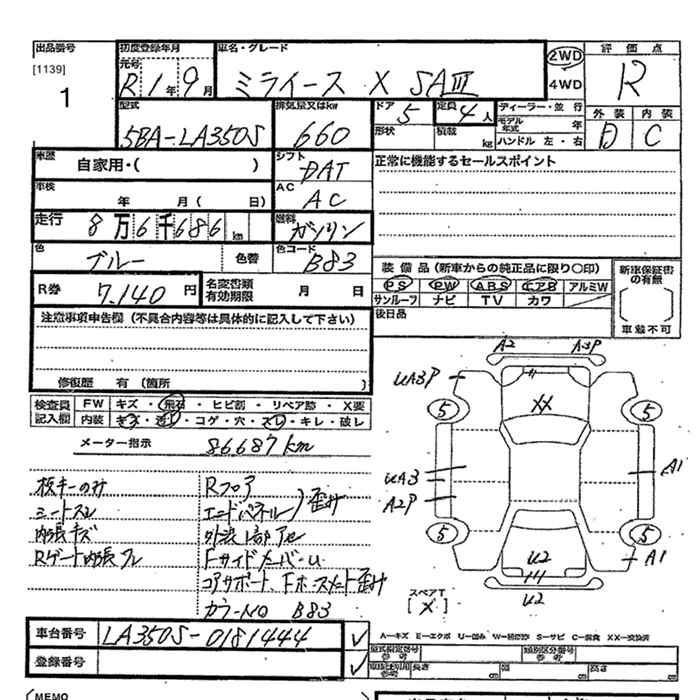 出品番号 初度登録年月 車名・グレード 2WD 評価点
[1139] 元号 R1年9月 ミライース X SAⅢ 4WD R
1
型式 排気量又はkw ドア 5 定員 4人 ディーラー・並行 外装 内装
5BA-LA350S 660 形状 積載 kg モデル年式 年 D C
ハンドル 左・右
車歴 自家用・( ) シフト DAT 正常に機能するセールスポイント
車検 年 月( 日) AC AC
走行 8万6千686km 燃料 ガソリン
色 ブルー 色替 色コード B83
装備品(新車からの純正品に限り○印) 新車保証書の有無
R券 7,140円 名変書類有効期限 月 日 PS PW ABS エアB アルミW
サンルーフ ナビ TV カワ ( )
注意事項申告欄(不具合内容等は具体的に記入して下さい) 後日品 車載不可
修復歴 有(箇所 )
検査員 FW キズ・飛石・ヒビ割・リペア跡・X要
記入欄 内装 キズ・汚レ・コゲ・穴・スレ・キレ・破レ
メーター指示 86687km
A2 A3P
UA3P
XX
5 5
UA3 A1
A2P
5 5
U2 A1
U2
板キーのみ Rフロア
シートスレ エンドパネル 歪み
内張キズ
Rゲート内張ワレ Fサイドメンバーu
コアサポート、
カラーNO B83
スペアT
[X]
車台番号 LA350S-0181444 ✓
登録番号 ✓
A-キズ E-エクボ U-凹み W-補修跡 S-サビ C-腐食 XX-交換済
型式指定番号 参考 類別区分番号 参考
参考 長さ cm 幅 cm 高さ cm
MEMO